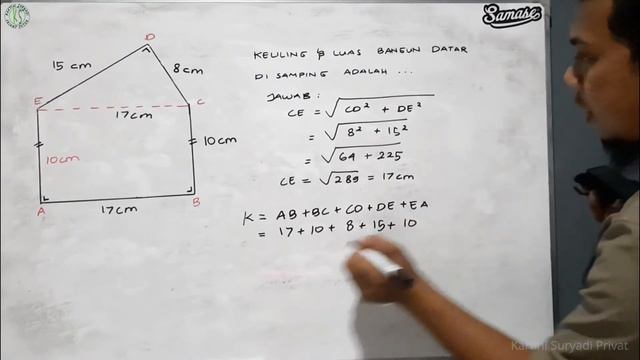 Samase
D
15 cm
8 cm
E
C
17cm
10cm
10 cm
A
B
17cm
KELILING & LUAS BANGUN DATAR
DI SAMPING ADALAH ...
JAWAB :
CE = √CD² + DE²
= √8² + 15²
= √64 + 225
CE = √289 = 17cm
K = AB + BC + CD + DE + EA
= 17 + 10 + 8 + 15 + 10
Kartini Suryadi Privat